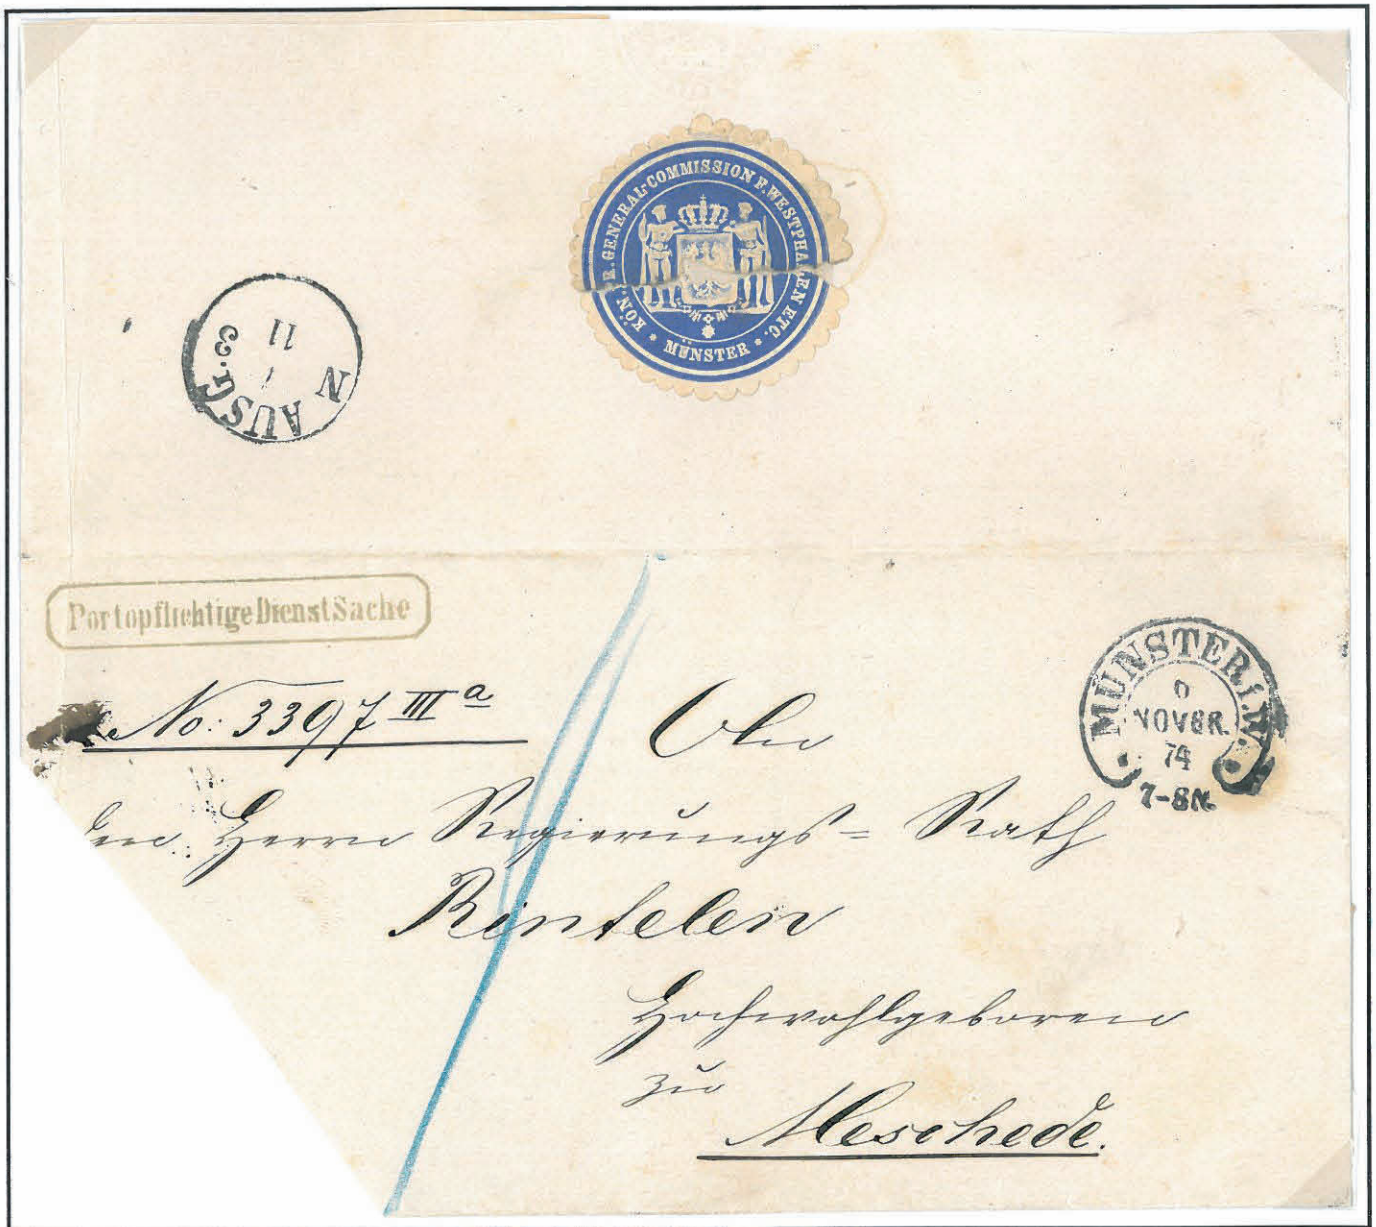 KÖN. PR. GENERAL-COMMISSION F. WESTPHALEN ETC.
* MÜNSTER *
N AUSG. 3
11
PortopflichtigeDienstSache
No: 3397 IIIa
MÜNSTER I.W.
NOVBR.
74
7-8N.
An
den Herrn Regierungs= Rath
Rintelen
Hochwohlgeboren
zu
Meschede.